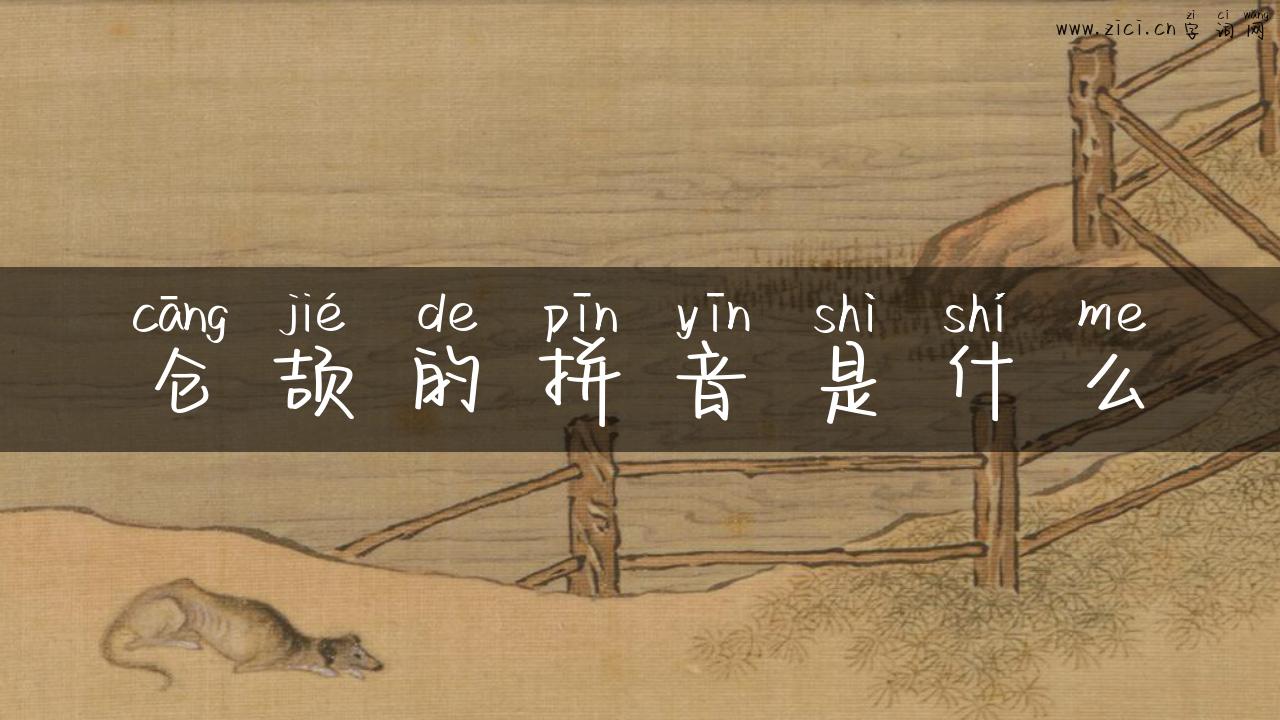 zì cí wǎng
www.zici.cn字词网
cāng jié de pīn yīn shì shí me
仓颉的拼音是什么